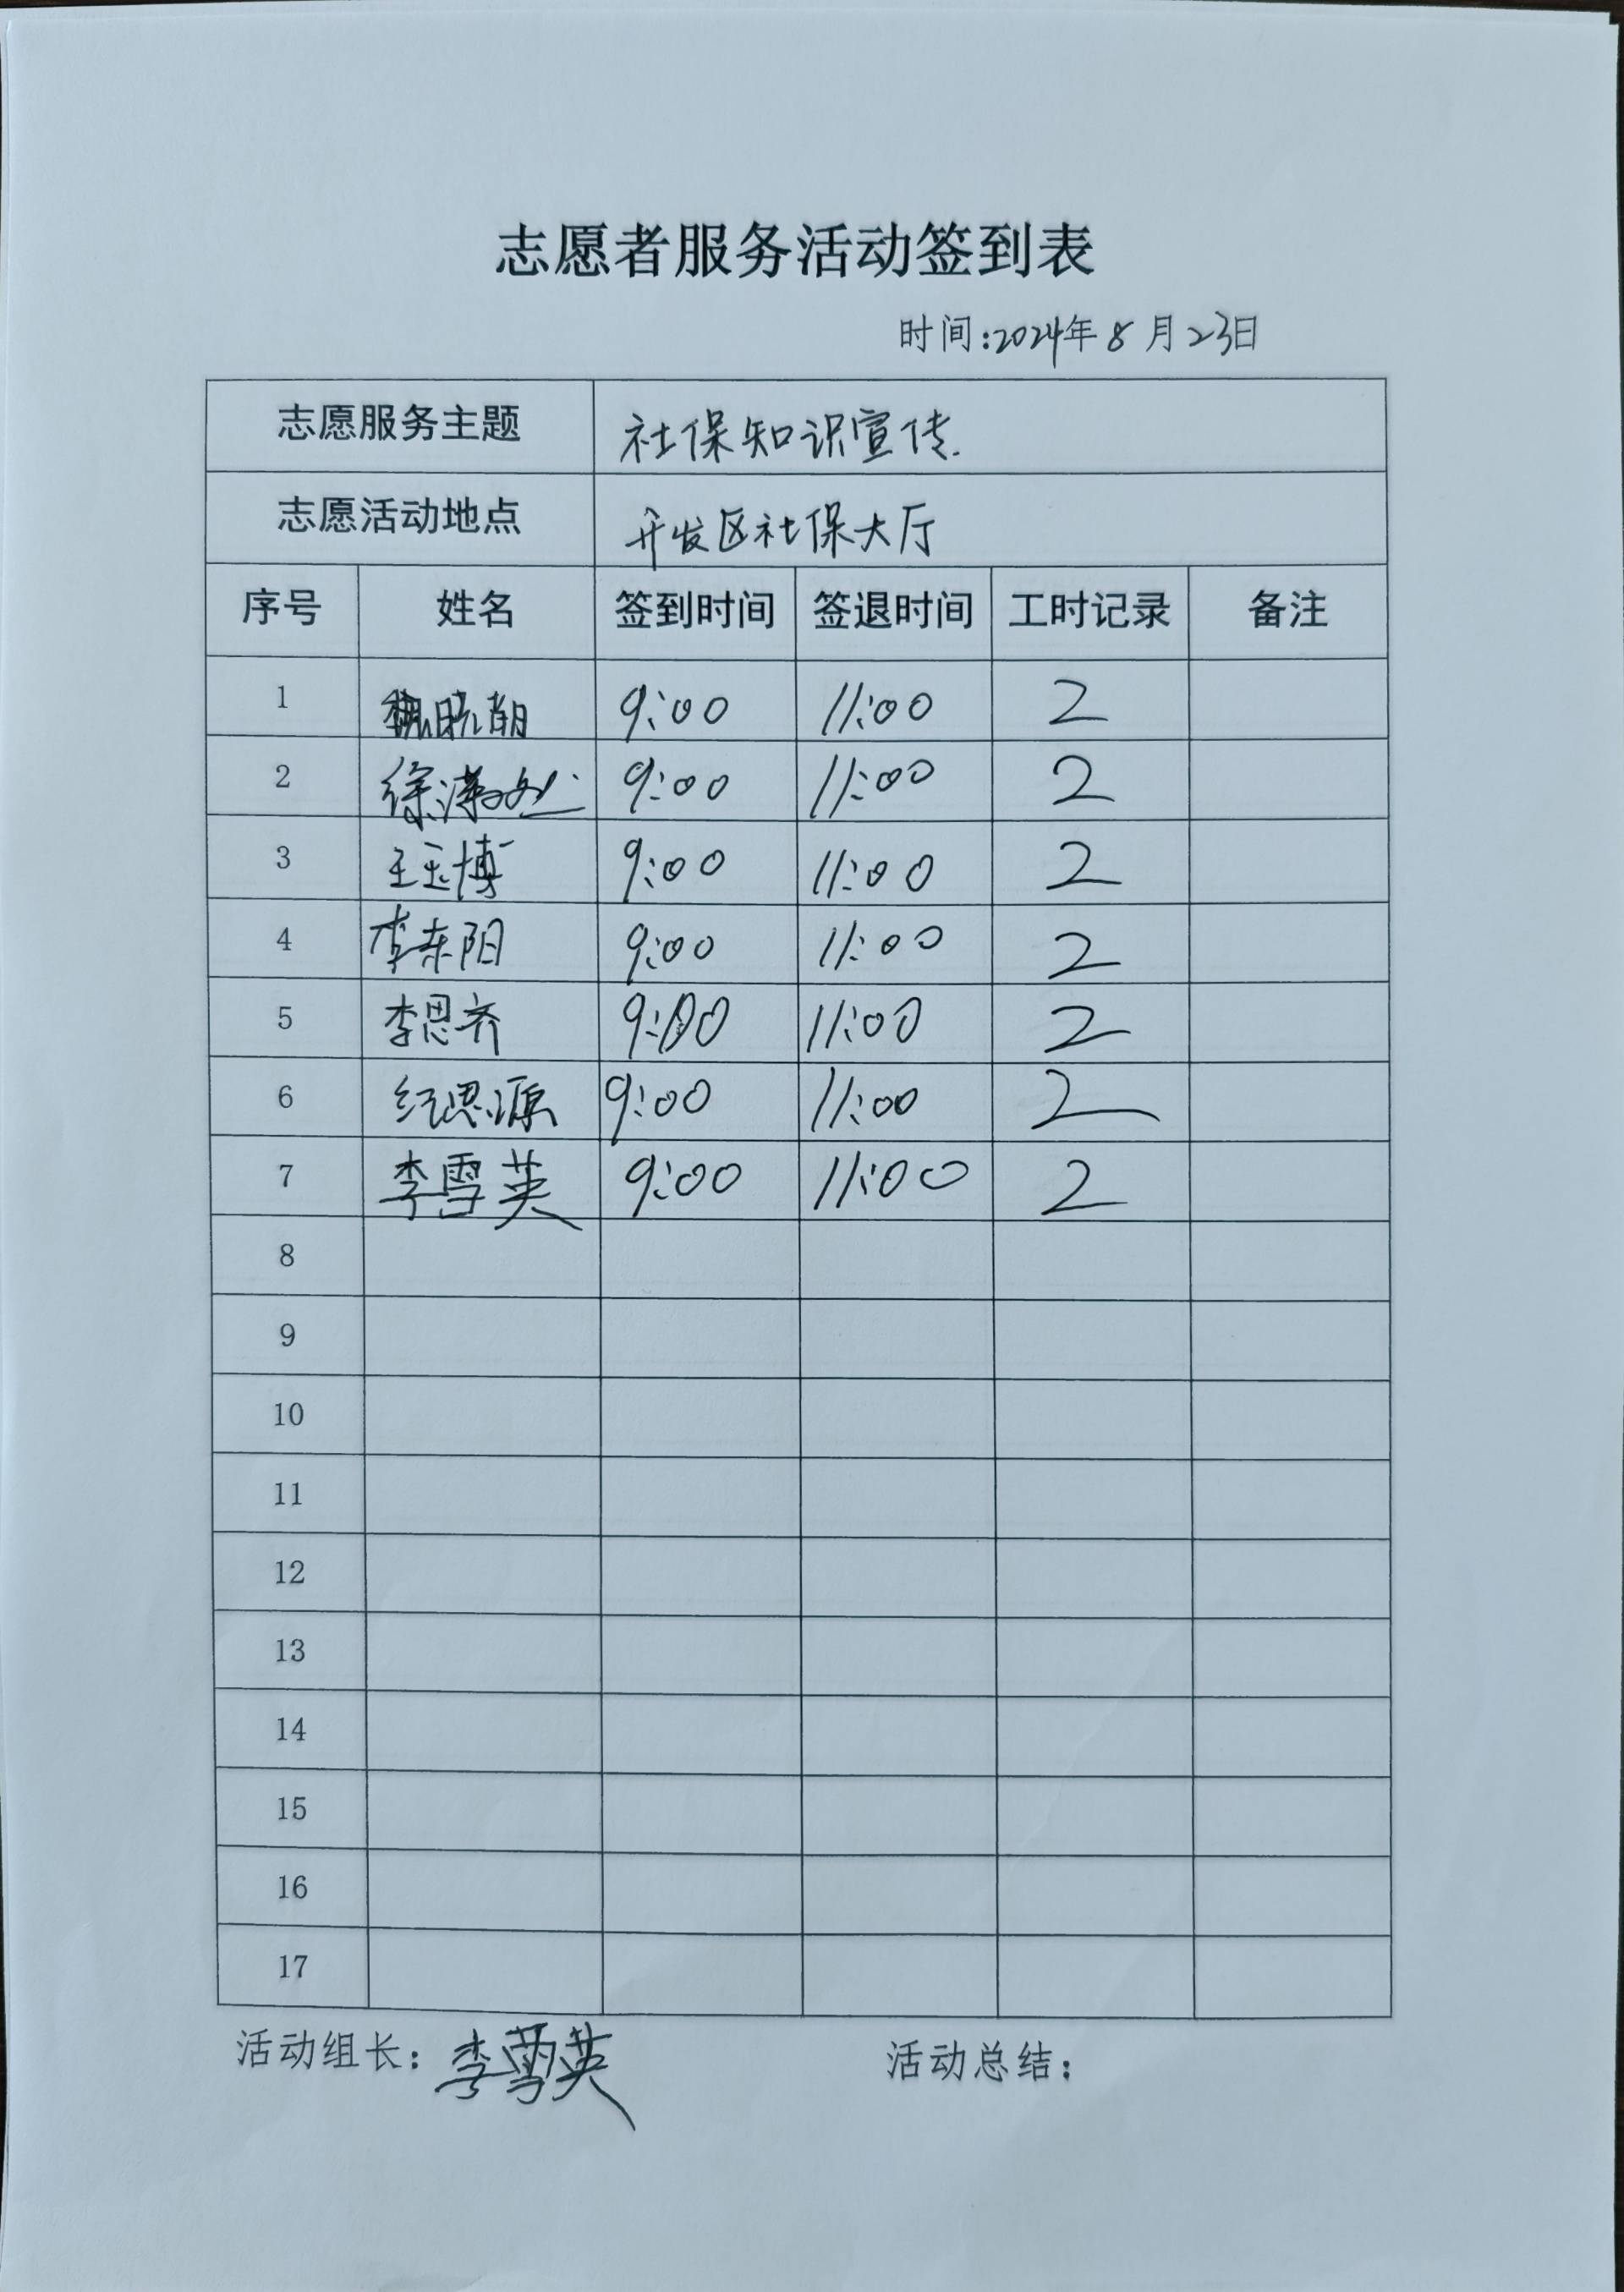 志愿者服务活动签到表
时间:2024年8月23日
志愿服务主题 社保知识宣传.
志愿活动地点 开发区社保大厅
序号 姓名 签到时间 签退时间 工时记录 备注
1 魏晓朝 9:00 11:00 2
2 徐 9:00 11:00 2
3 王玉博 9:00 11:00 2
4 李东阳 9:00 11:00 2
5 李思齐 9:00 11:00 2
6 纪思源 9:00 11:00 2
7 李雪英 9:00 11:00 2
8
9
10
11
12
13
14
15
16
17
活动组长：李雪英 活动总结：